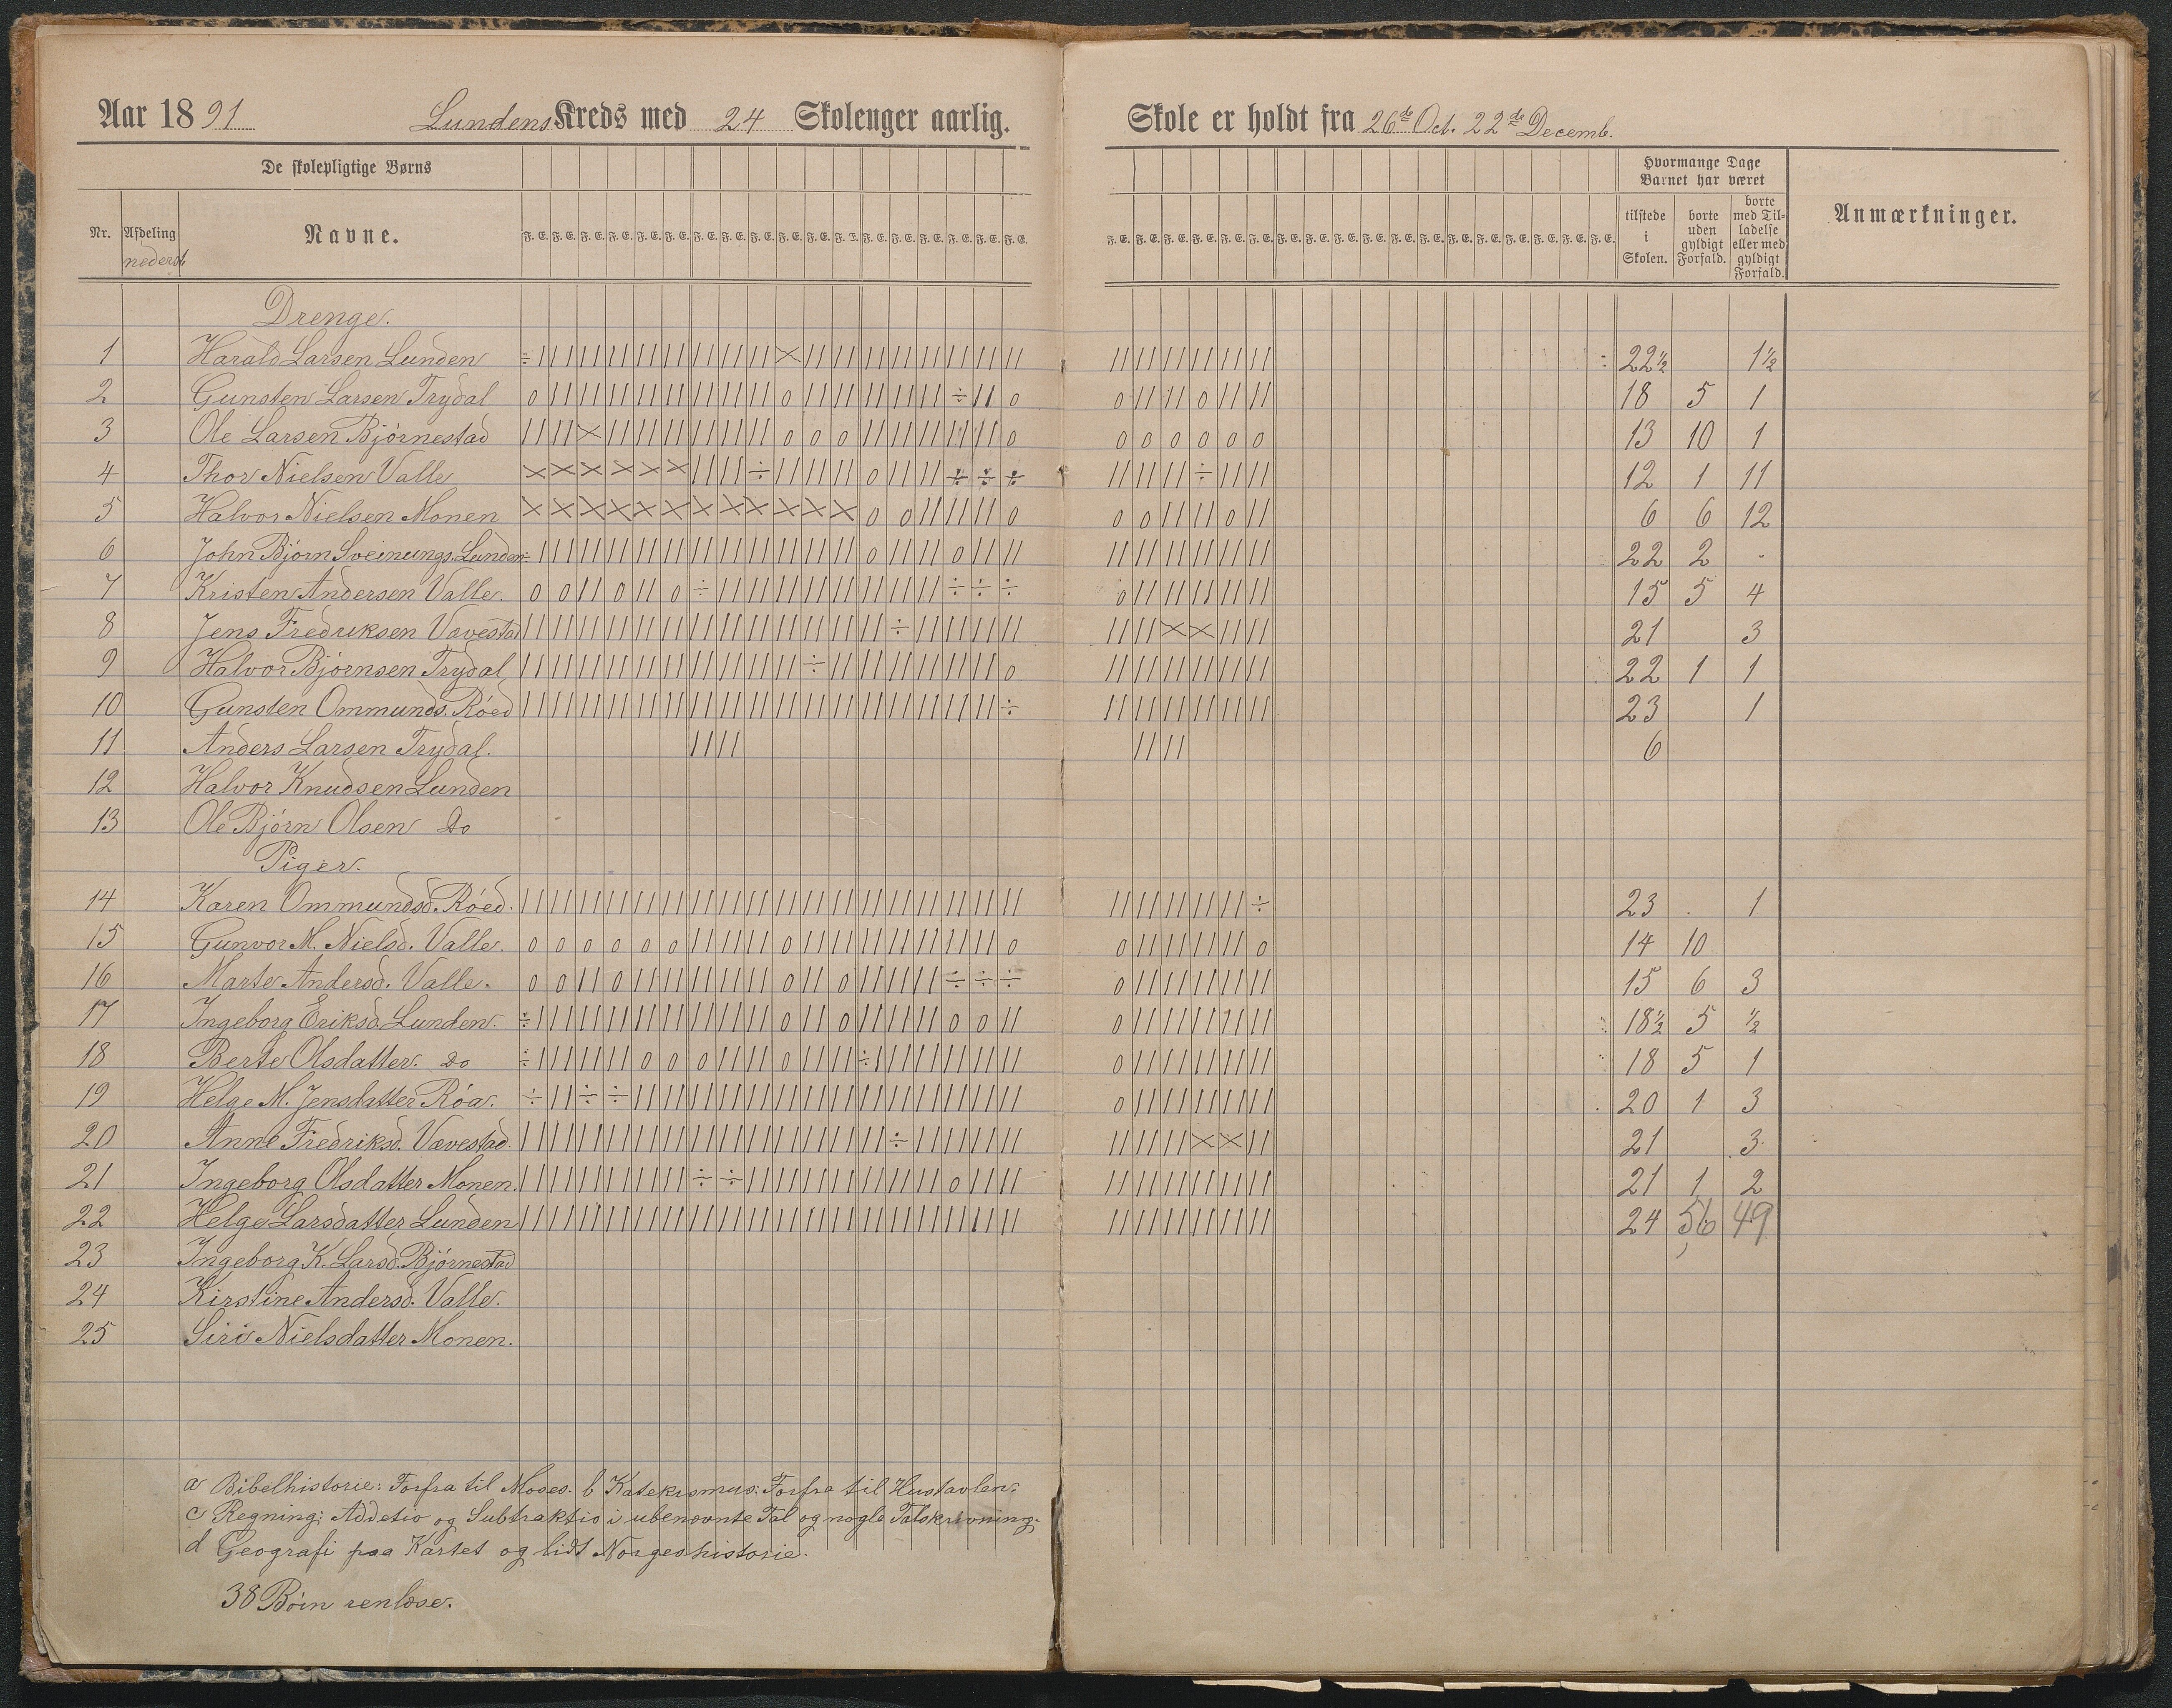 Aar 1891 Lundens Kreds med 24 Skolenger aarlig. Skole er holdt fra 26de Oct. 22de Decemb.
De skolepligtige Børns
Hvormange Dage Barnet har været
Nr. Afdeling nederst Navne.
F. E. F. E. F. E. F. E. F. E. F. E. F. E. F. E. F. E. F. E. F. E. F. E. F. E. F. E. F. E. F. E. F. E. F. E.
F. E. F. E. F. E. F. E. F. E. F. E. F. E. F. E. F. E. F. E. F. E. F. E. F. E. F. E. F. E. F. E. F. E. F. E.
tilstede i Skolen. borte uden gyldigt Forfald. borte med Tilladelse eller med gyldigt Forfald. Anmærkninger.
Drenge.
1 Harald Larsen Lunden 22½ 1½
2 Gunsten Larsen Trydal 18 5 1
3 Ole Larsen Bjørnestad 13 10 1
4 Thor Nielsen Valle 12 1 11
5 Halvor Nielsen Monen 6 6 12
6 John Bjørn Sveinungs. Lunden 22 2 -
7 Kristen Andersen Valle. 15 5 4
8 Jens Fredriksen Vævestad 21 3
9 Halvor Bjørnsen Trydal 22 1 1
10 Gunsten Ommunds. Røed 23 1
11 Anders Larsen Trydal. 6
12 Halvor Knudsen Lunden
13 Ole Bjørn Olsen Do
Piger.
14 Karen Ommundsd. Røed. 23 . 1
15 Gunvor M. Nielsd. Valle. 14 10
16 Marte Andersd. Valle. 15 6 3
17 Ingeborg Eriksd. Lunden. 18½ 5 ½
18 Berte Olsdatter. Do 18 5 1
19 Helge M. Jensdatter Røa. 20 1 3
20 Anne Fredriksd. Vævestad. 21 3
21 Ingeborg Olsdatter Monen. 21 1 2
22 Helge Larsdatter Lunden 24 56 49
23 Ingeborg K. Larsd. Bjørnestad
24 Kirstine Andersd. Valle.
25 Siri Nielsdatter Monen.
a Bibelhistorie: Forfra til Moses. b Katekismus: Forfra til Hustavlen.
c Regning: Addetio og Subtraktio i ubenævnte Tal og nogle Talskrivning.
d Geografi paa Kartet og lidt Norgeshistorie.
38 Børn renlæse.